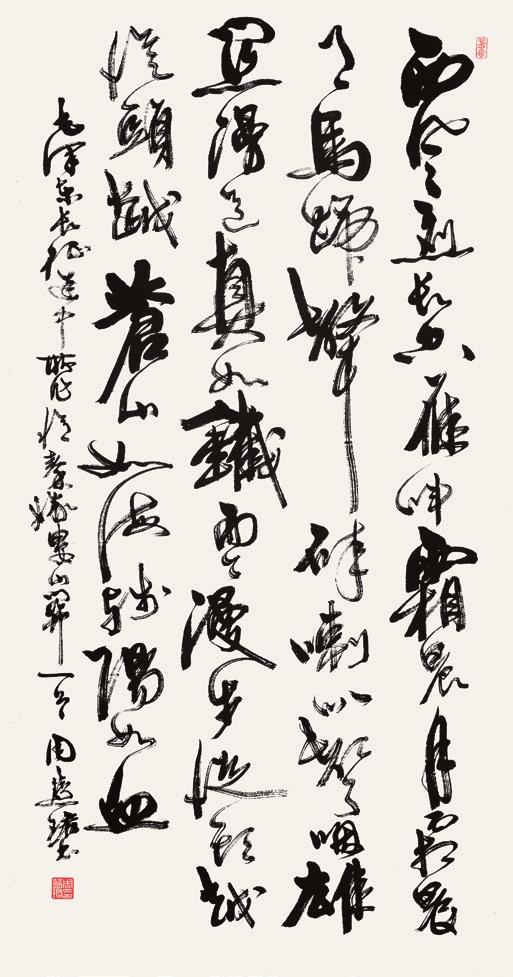 西風烈長空雁叫霜晨月霜晨
月馬蹄聲碎喇叭聲咽雄
關漫道真如鐵而今漫步從頭越
從頭越蒼山如海殘陽如血
毛澤東長征途中所作憶秦娥婁山關一首周慧珺書